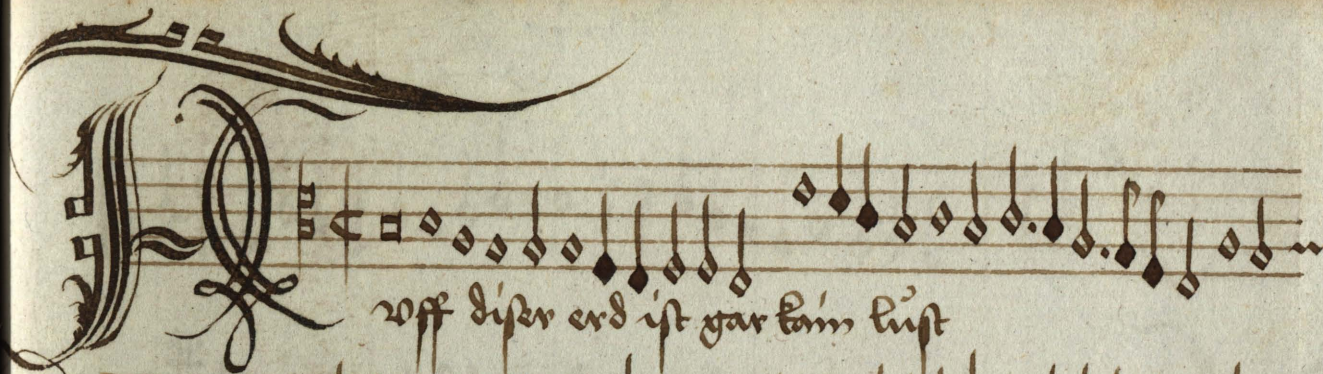 vff diser erd ist gar kain lust